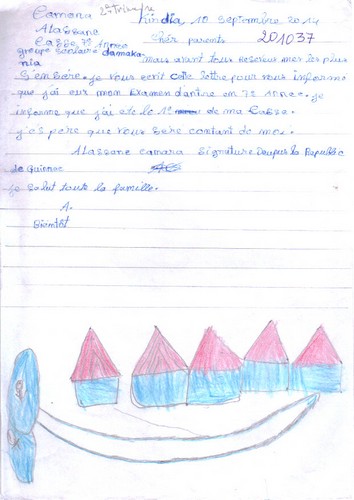 2e Trimestre
Camara Kindia 10 septembre 2014
Alassane Chèr parents 201037
Casse 7e Année
groupe scolaire damaka
nia Mais avant tout recevius mes les plus
S'embère. je vous ecrit cette lettre pour vous informe
que j'ai eur mon Examen d'antre en 7e Année. je
informe que j'ai etè le 1e de ma Casse.
j'espere que vous sere contant de moi.
Alassane camara Signiture Depuis la Republic
de Guinnee
je Salut touts la famille.
A.
Bientôt